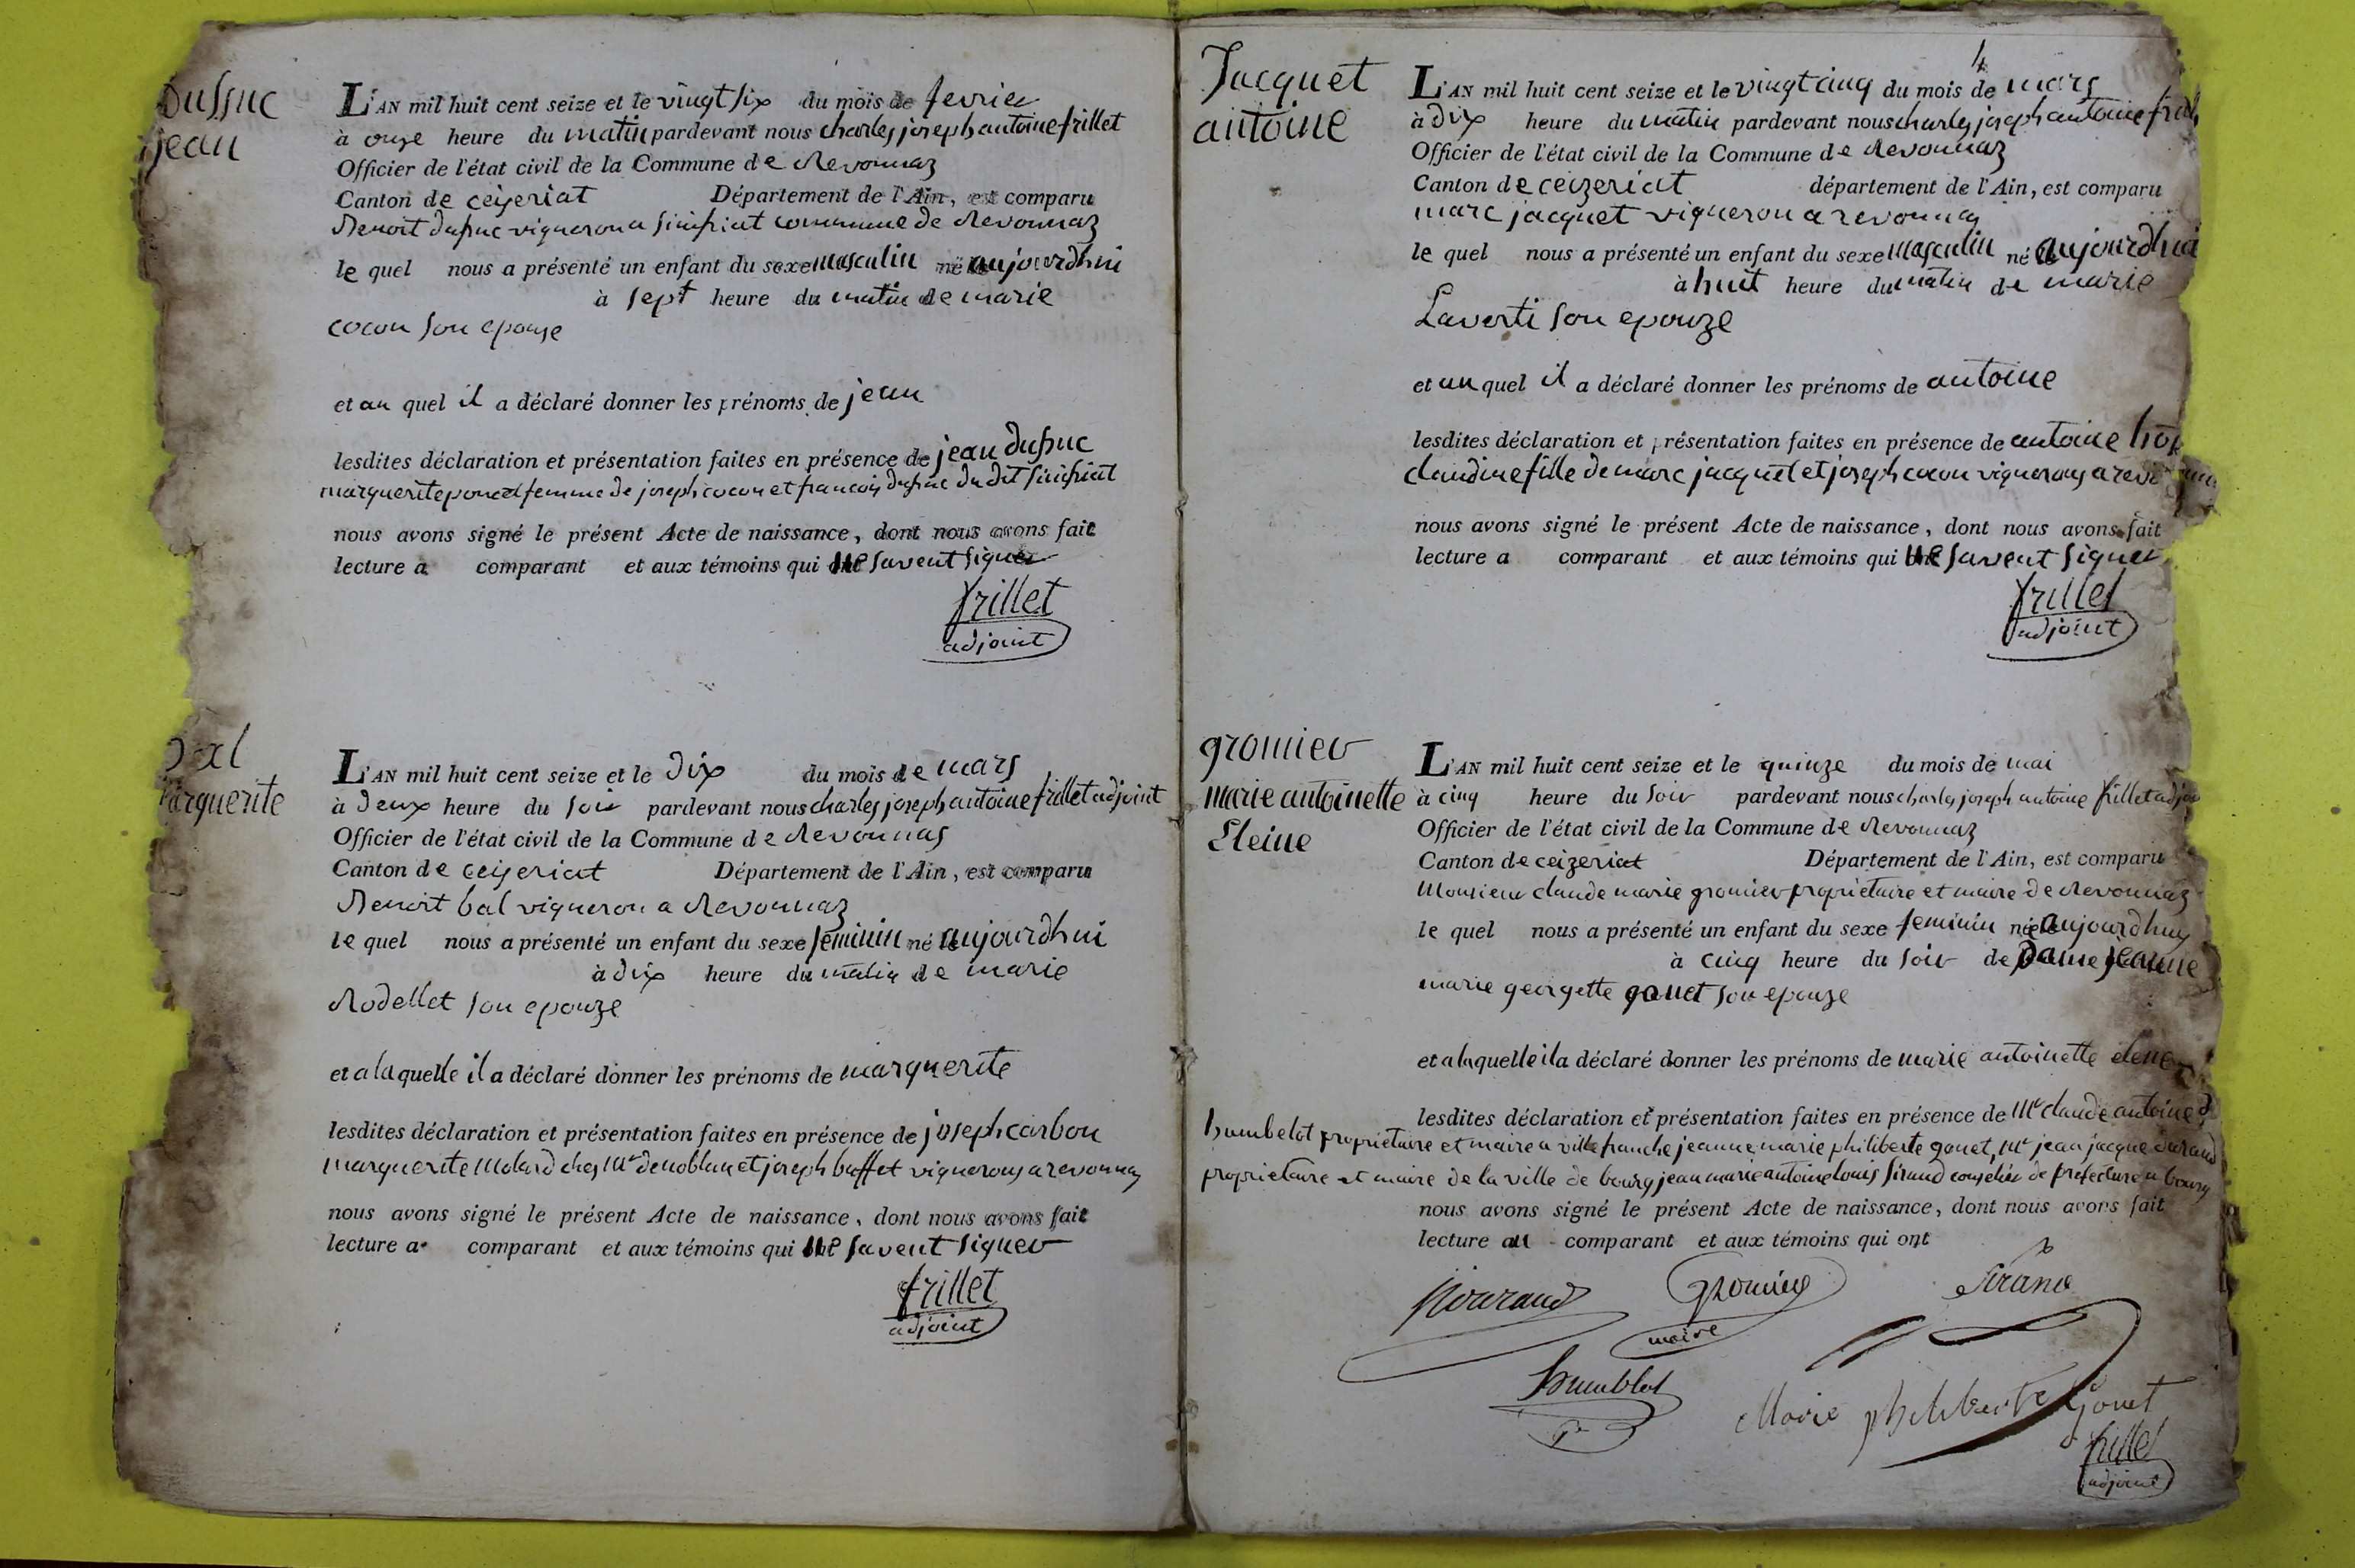 Dussuc
jean
L'AN mil huit cent seize et le vingt six du mois de fevrier
à onze heure du matin pardevant nous charles joseph antoine frillet
Officier de l'état civil de la Commune de Revonnaz
Canton de ceyzeriat Département de l'Ain, est comparu
Benoit dussuc vigneron a simfriat commune de Revonnaz
le quel nous a présenté un enfant du sexe masculin né aujourdhui
à sept heure du matin de marie
cocon son epouze
et au quel il a déclaré donner les prénoms de jean
lesdites déclaration et présentation faites en présence de jean dussuc
marguerite femme de joseph cocon et francois dussuc du dit simfriat
nous avons signé le présent Acte de naissance, dont nous avons fait
lecture a comparant et aux témoins qui ne savent signer
frillet
adjoint
bal
marguerite
L'AN mil huit cent seize et le dix du mois de mars
à deux heure du soir pardevant nous charles joseph antoine frillet adjoint
Officier de l'état civil de la Commune de Revonnas
Canton de ceyzeriat Département de l'Ain, est comparu
Benoit bal vigneron a Revonnaz
le quel nous a présenté un enfant du sexe feminin né aujourdhui
à dix heure du matin de marie
Rodellet son epouze
et a laquelle il a déclaré donner les prénoms de marguerite
lesdites déclaration et présentation faites en présence de joseph carbon
marguerite Molard chez Mr denoblan et joseph buffet vignerons a revonnaz
nous avons signé le présent Acte de naissance, dont nous avons fait
lecture a comparant et aux témoins qui ne savent signer
frillet
adjoint
4
Jacquet
antoine
L'AN mil huit cent seize et le vingt cinq du mois de mars
à dix heure du matin pardevant nous charles joseph antoine frill
Officier de l'état civil de la Commune de Revonnaz
Canton de ceizeriat département de l'Ain, est comparu
marc jacquet vigneron a revonnaz
le quel nous a présenté un enfant du sexe masculin né aujourdhui
à huit heure du matin de marie
Laverti son epouze
et au quel il a déclaré donner les prénoms de antoine
lesdites déclaration et présentation faites en présence de antoine
claudine fille de marc jacquet et joseph cocon vignerons a revonnaz
nous avons signé le présent Acte de naissance, dont nous avons fait
lecture a comparant et aux témoins qui ne savent signer
frillet
adjoint
gromier
marie antoinette
Eleine
L'AN mil huit cent seize et le quinze du mois de mai
à cinq heure du soir pardevant nous charles joseph antoine frillet adjoi
Officier de l'état civil de la Commune de Revonnaz
Canton de ceizeriat Département de l'Ain, est comparu
Monsieur claude marie gromier propriétaire et maire de Revonnaz
le quel nous a présenté un enfant du sexe feminin née aujourdhuy
à cinq heure du soir de Dame jeanne
marie georgette gonet son epouze
et a laquelle il a déclaré donner les prénoms de marie antoinette elene
lesdites déclaration et présentation faites en présence de Mr claude antoine
humbelot propriétaire et maire a ville franche jeanne marie philiberte gonet, Mr jean jacque durand
propriétaire et maire de la ville de bourg jean marie antoine louis sirand conseiller de prefecture a bourg
nous avons signé le présent Acte de naissance, dont nous avons fait
lecture au comparant et aux témoins qui ont
gromier
maire
Sirand
humblot
Marie philiberte Gonet
frillet
adjoint